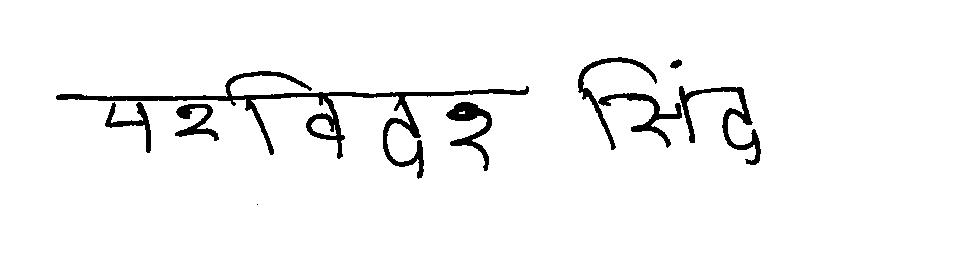 परविदर सिंद